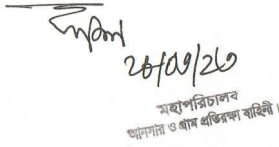 ২৮/০৩/২৩
মহাপরিচালক
আনসার ও গ্রাম প্রতিরক্ষা বাহিনী।